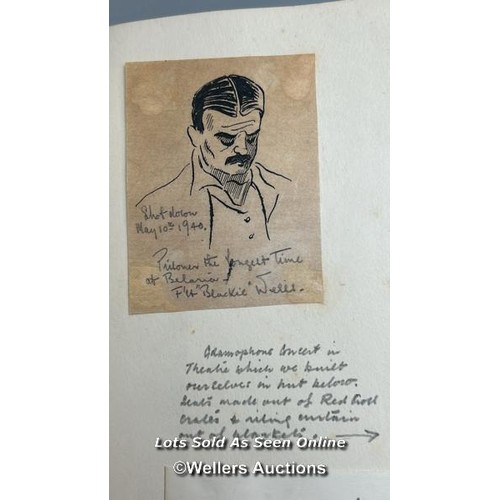 Shot down
May 10th 1940.
Prisoner the longest Time
at Belaria -
F/Lt "Blackie" Wells.
Gramophone Concert in
Theatre which we built
ourselves in hut below.
Seats made out of Red Cross
crates & rising curtain
out of blankets
Lots Sold As Seen Online
©Wellers Auctions